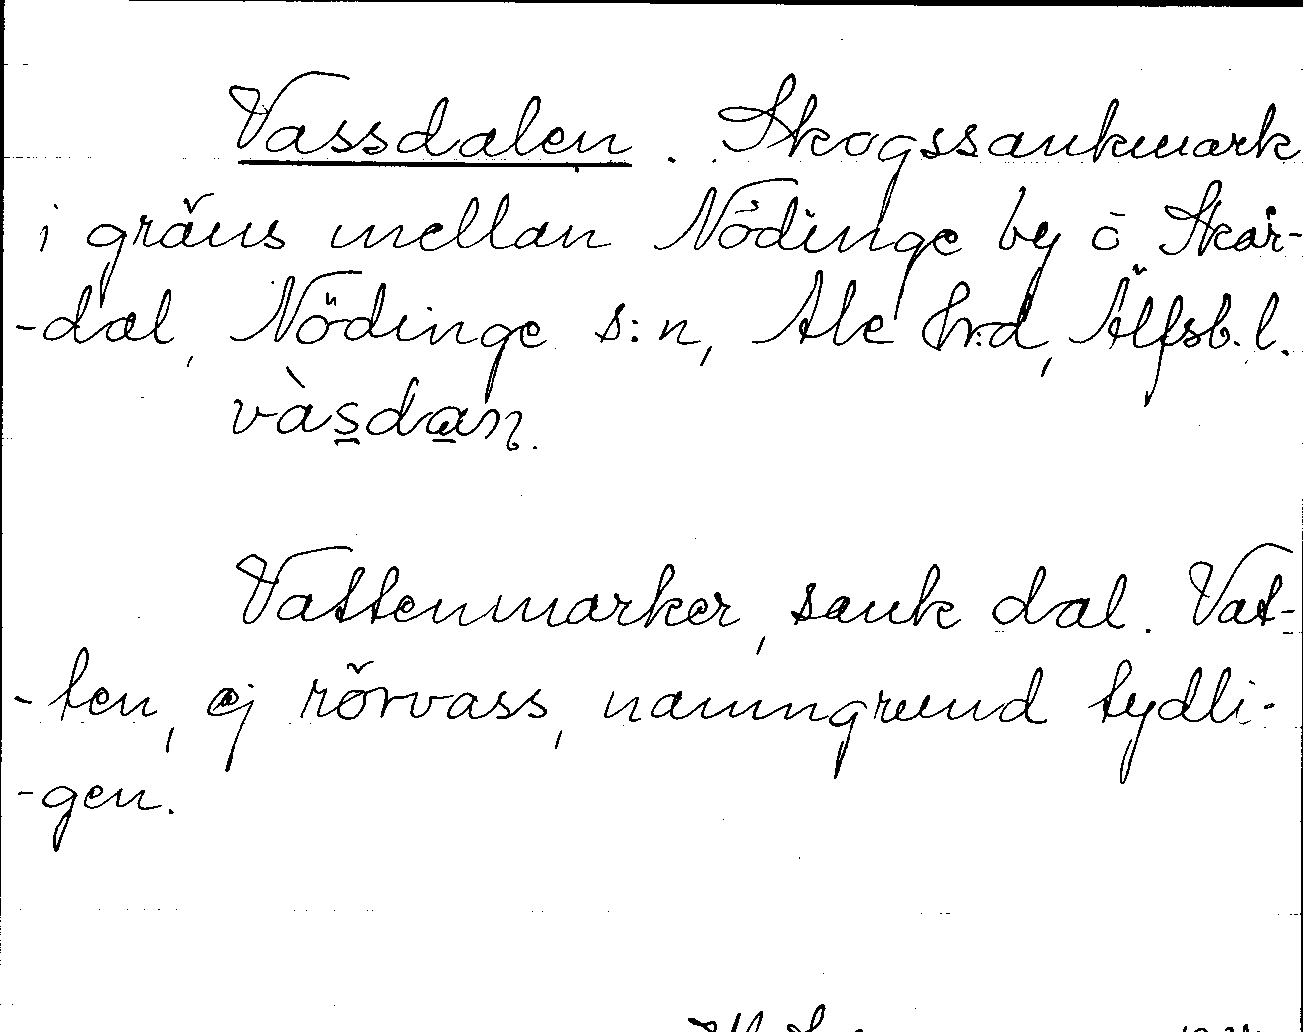 Vassdalen. Skogssankmark
i gräns mellan Nödinge by o Skår-
-dal, Nödinge s:n, Ale hrd, Älfsb. l.
vàsdan.
Vattenmarker, sank dal. Vat-
-ten, ej rörvass, namngrund tydli-
-gen.